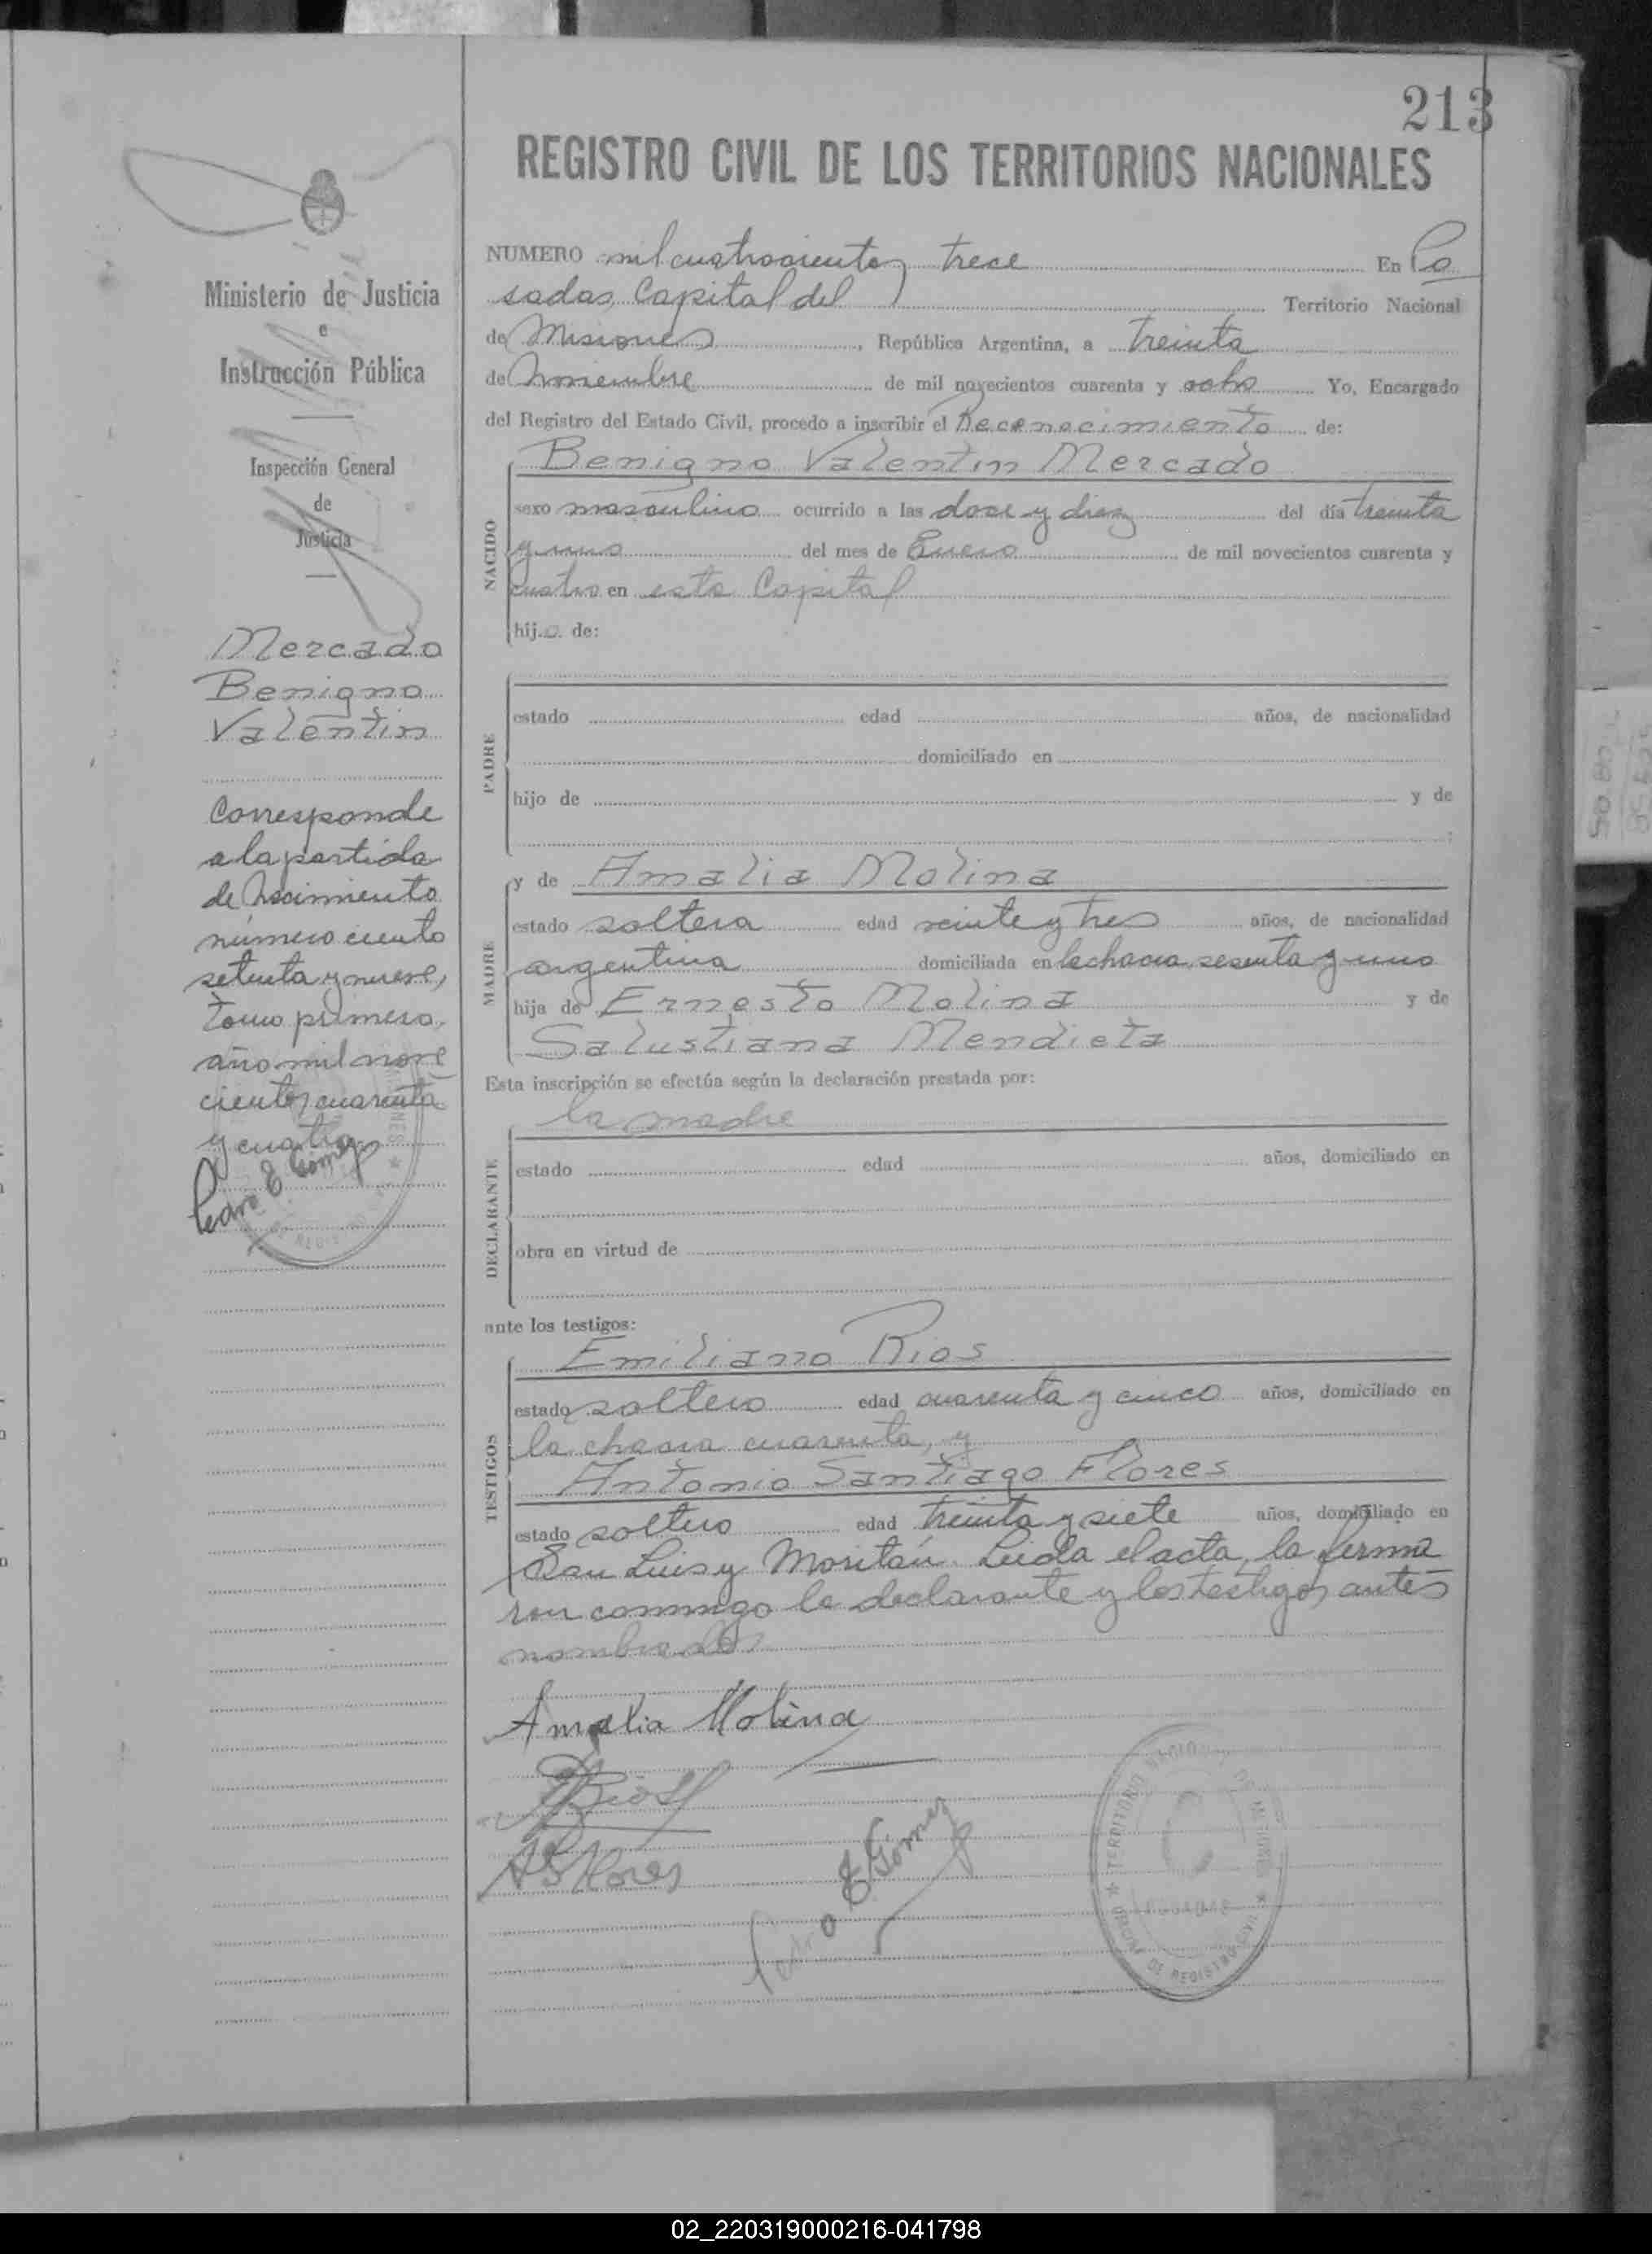 213
REGISTRO CIVIL DE LOS TERRITORIOS NACIONALES
Ministerio de Justicia
e
Instrucción Pública
Inspección General
de
Justicia
Mercado
Benigno
Valentin
Corresponde
a la partida
de Nacimiento
número ciento
setenta y nueve,
Tomo primero,
año mil nove
cientos cuarenta
y cuatro
Pedro E Gómez
NUMERO mil cuatrocientos trece En Po
sadas, Capital del Territorio Nacional
de Misiones, República Argentina, a treinta
de Noviembre de mil novecientos cuarenta y ocho Yo, Encargado
del Registro del Estado Civil, procedo a inscribir el Reconocimiento de:
Benigno Valentin Mercado
NACIDO
sexo masculino ocurrido a las doce y diez del día treinta
y uno del mes de Enero de mil novecientos cuarenta y
cuatro en esta Capital
hijo de:
PADRE
estado edad años, de nacionalidad
domiciliado en
hijo de y de
y de Amalia Molina
MADRE
estado soltera edad veinte y tres años, de nacionalidad
argentina domiciliada en la chacra sesenta y uno
hija de Ernesto Molina y de
Salustiana Mendieta
Esta inscripción se efectúa según la declaración prestada por:
la madre
DECLARANTE
estado edad años, domiciliado en
obra en virtud de
ante los testigos:
Emiliano Rios
TESTIGOS
estado soltero edad cuarenta y cinco años, domiciliado en
la chacra cuarenta, y
Antonio Santiago Flores
estado soltero edad treinta y siete años, domiciliado en
San Luis y Moritán. Leida el acta, la firma
ron conmigo la declarante y los testigos antes
nombrados
Amalia Molina
E Rios
A S Flores
Pedro E Gómez
TERRITORIO NACIONAL DE MISIONES
POSADAS
DE REGISTRO CIVIL
02_220319000216-041798